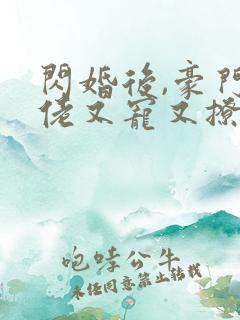 閃婚後,豪門
佬又寵又撩
咆哮公牛
未經同意禁止轉載